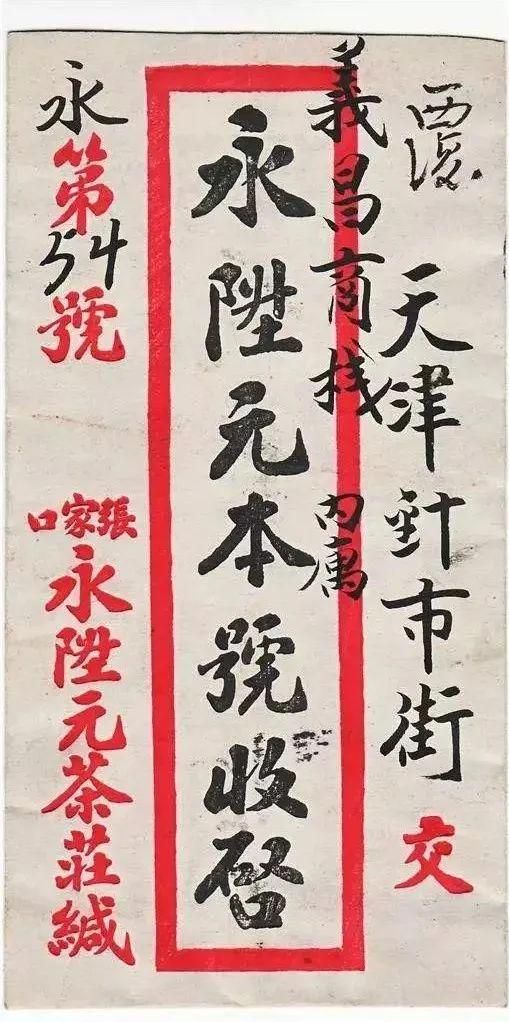 覆
天津針市街交
義昌商栈內寓
永陞元本號收啓
永第54號
張家口
永陞元茶莊緘